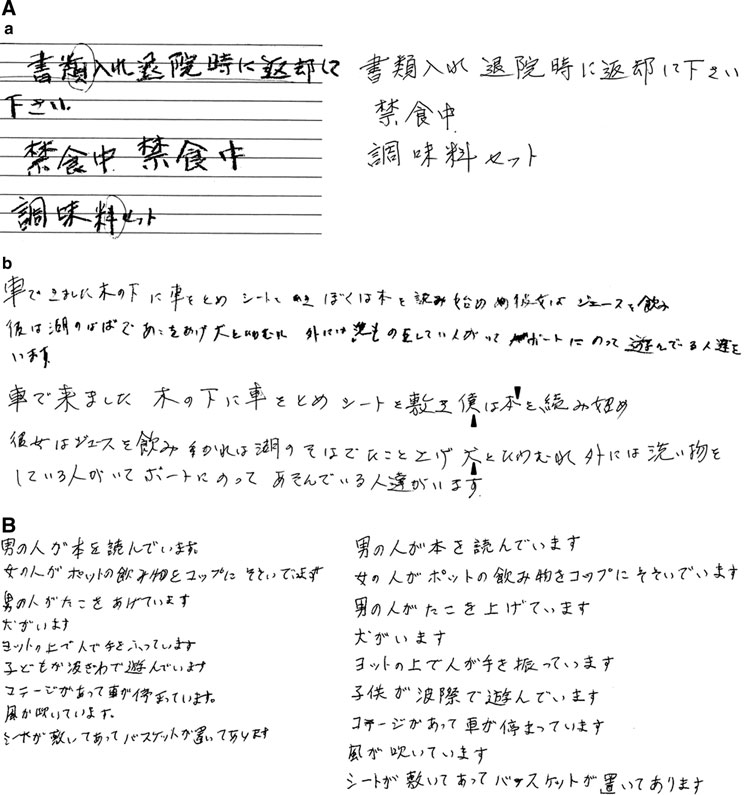 A
a
書類入れ退院時に返却して
下さい
禁食中 禁食中
調味料セット
書類入れ 退院時に返却して下さい
禁食中
調味料セット
b
車できました木の下に車をとめ シートを しき ぼくは本を読み始め 彼女はジュースを飲み
彼は湖の で たこをあげ犬と 外には 洗 もの をしている人がいて ボートにのって遊んでいる人達を
います
車で来ました 木の下に車をとめ シートを敷き 僕は本を読み始め
彼女はジュースを飲み かれは湖のそばでたこと上げ 犬とひわむれ 外には洗い物を
している人がいてボートにのって あそんでいる人達がいます
B
男の人が本を読んでいます。
女の人がポットの飲み物をコップにそそいでます
男の人がたこをあげています
犬がいます
ヨットの上で人で手をふっています
子どもが波ぎわで遊んでいます
コテージがあって車が停まっています。
風が吹いています。
シートが敷いてあってバスケットが置いてあります
男の人が本を読んでいます
女の人がポットの飲み物をコップにそそいでいます
男の人がたこを上げています
犬がいます
ヨットの上で人が手を振っています
子供が波際で遊んでいます
コテージがあって車が停まっています
風が吹いています
シートが敷いてあってバッスケットが置いてあります